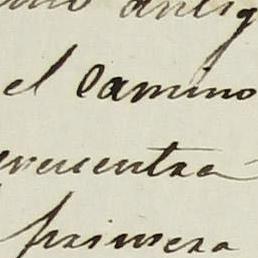 antig
el camino
encuentra
primera